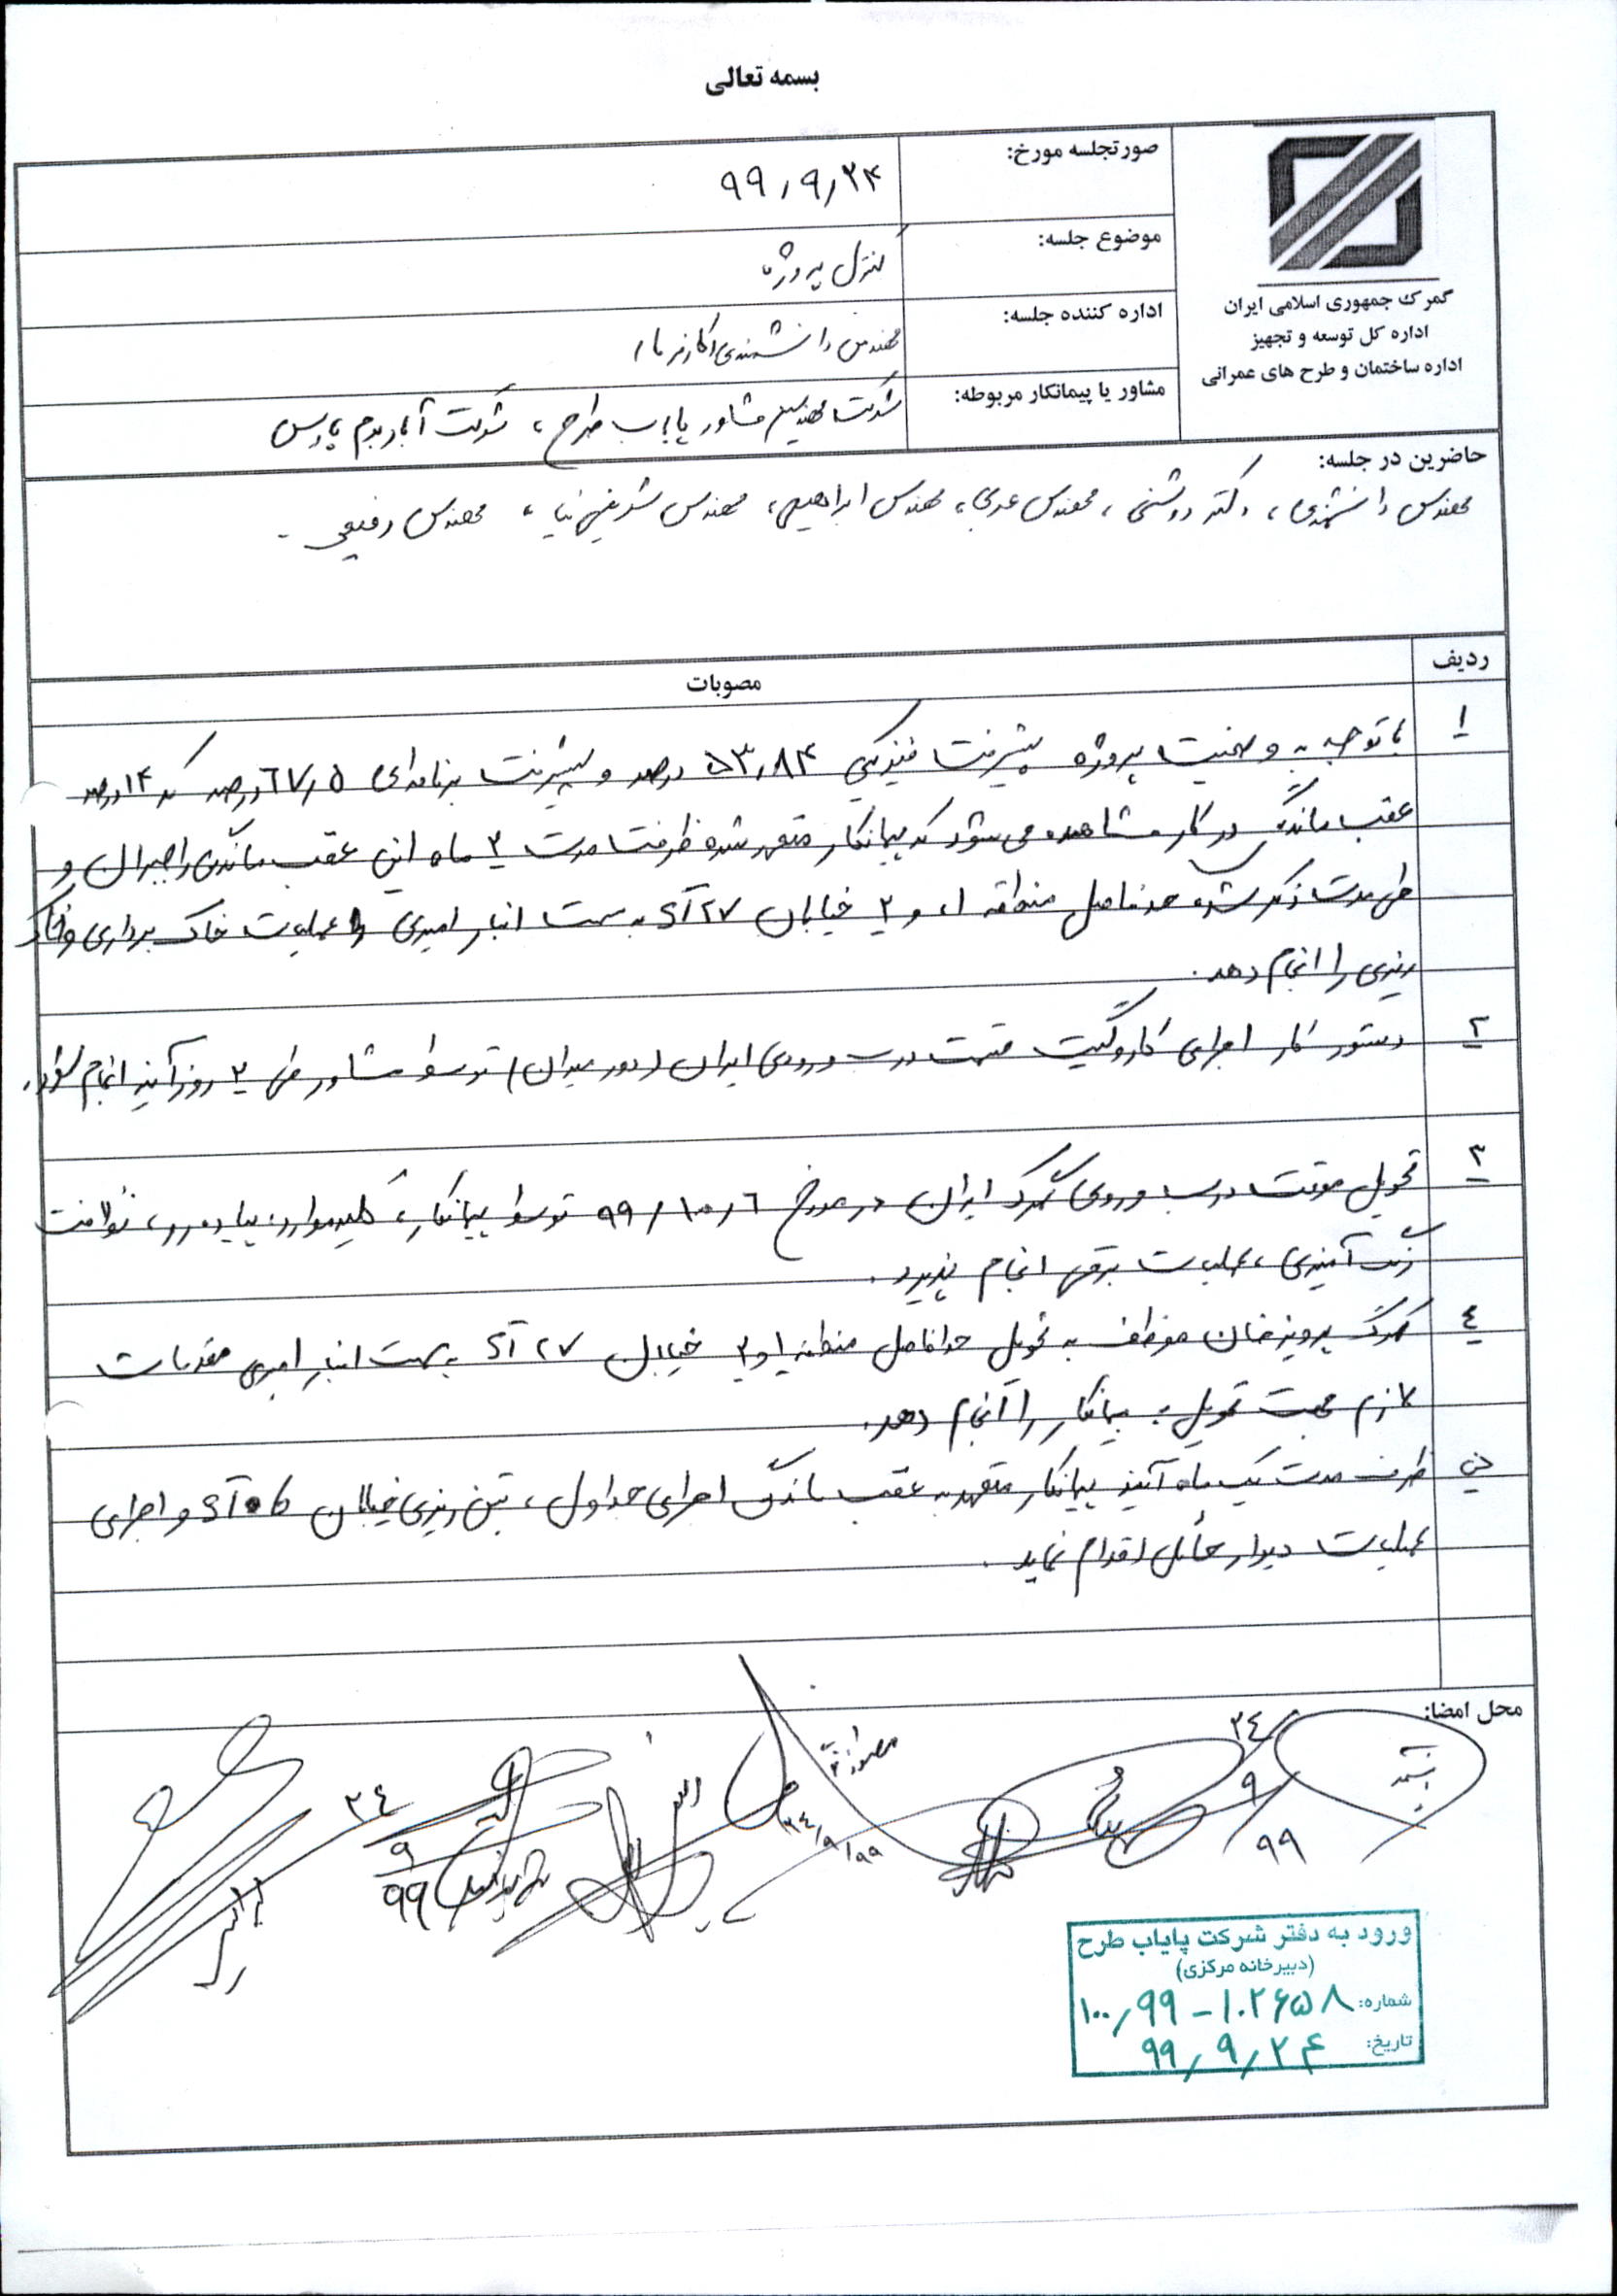 بسمه تعالی
گمرک جمهوری اسلامی ایران
اداره کل توسعه و تجهیز
اداره ساختمان و طرح های عمرانی
صورتجلسه مورخ: ۹۹٫۹٫۲۴
موضوع جلسه: کنترل پروژه
اداره کننده جلسه: مهندس دانشمندی (کارفرما)
مشاور یا پیمانکار مربوطه: شرکت مهندسین مشاور پایاب طرح، شرکت آباد بوم پارس
حاضرین در جلسه:
مهندس دانشمندی، دکتر روشنی، مهندس عربی، مهندس ابراهیمی، مهندس شریفی نیا، مهندس رفیعی.
ردیف مصوبات
۱ با توجه به وضعیت پروژه پیشرفت فیزیکی ۵۳٫۸۴ درصد و پیشرفت برنامه‌ای ۶۷٫۵ درصد که ۱۴ درصد
عقب ماندگی در کار مشاهده می‌شود که پیمانکار متعهد شده ظرف مدت ۲ ماه این عقب ماندگی را جبران و
طی مدت ذکر شده حدفاصل منطقه ۱ و ۲ خیابان ۲۷ آ ک به سمت انبار امیری عملیات خاک برداری و خاک
ریزی را انجام دهد.
۲ دستور کار اجرای کار و گیت قسمت درب ورودی ایران (دور میدان) توسط مشاور طی ۲ روز آینده انجام شود.
۳ تحویل موقت درب ورودی گمرک ایران در مورخ ۹۹/۱۰/۶ توسط پیمانکار، کلیه موارد، پیاده رو، نظافت
رنگ آمیزی، عملیات برقی انجام پذیرد.
٤ گمرک پرویزخان موظف به تحویل حدفاصل منطقه ۱ و ۲ خیابان ۲۷ آ ک به سمت انبار امیری مقدمات
لازم جهت تحویل به پیمانکار را انجام دهد.
۵ ظرف مدت یک ماه آینده پیمانکار متعهد به عقب ماندگی اجرای جداول، بتن ریزی خیابان و اجرای
عملیات دیوار حائل اقدام نماید.
محل امضا:
۲٤/۹/۹۹
۲٤/۹/۹۹
۲٤/۹/۹۹
ورود به دفتر شرکت پایاب طرح
(دبیرخانه مرکزی)
شماره: ۱۰۰٫۹۹-۱۰۲۶۵۸
تاریخ: ۹۹٫۹٫۲۴